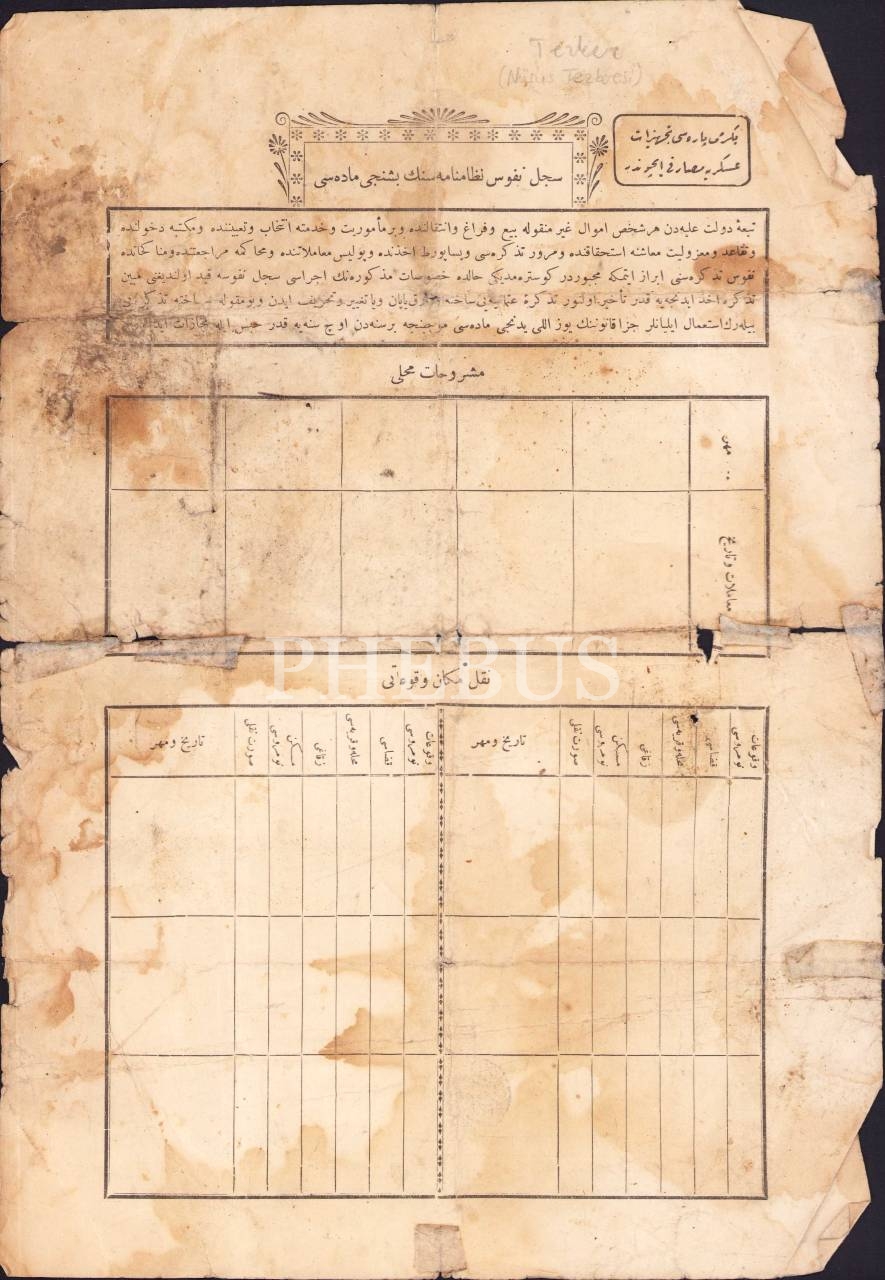 Tezker
(Nüfus Tezkeresi)
یكرمی پاره سی تجهیزات
عسكریه مصارفی ایچوندر
سجل نفوس نظامنامه سنك بشنجی ماده سی
تبعهٔ دولت علیه دن هر شخص اموال غیر منقوله بیع و فراغ وانتقالنده و بر مأموریت وخدمته انتخاب وتعییننده ومكتبه دخولنده
وتقاعد ومعزولیت معاشنه استحقاقنده ومرور تذكره سی وپساپورط اخذنده وپولیس معاملاتنده ومحاكمه مراجعتنده ومناكحاتده
نفوس تذكره سنی ابراز ایتمكه مجبوردر كوستره مدیكی حالده خصوصات مذكوره نك اجراسی سجل نفوسه قید اولندیغنی مبین
تذكره اخذ ایدنجه یه قدر تأخیر اولنور تذكرهٔ عثمانیه یی ساخته یاپان ویا تغییر وتحریف ایدن وبومقوله ساخته تذكره یی
بیله رك استعمال ایلیانلر جزا قانوننك یوز اللی یدنجی ماده سی موجبنجه بر سنه دن اوچ سنه یه قدر حبس ایله مجازات
مشروحات محلی
مهر
معاملات وتاریخ
PHEBUS
نقل مكان وقوعاتی
وقوعات نومروسی
قضاسی
محله وقریه سی
زقاغی
مسكن نومروسی
صورت نقل
تاریخ ومهر
وقوعات نومروسی
قضاسی
محله وقریه سی
زقاغی
مسكن نومروسی
صورت نقل
تاریخ ومهر